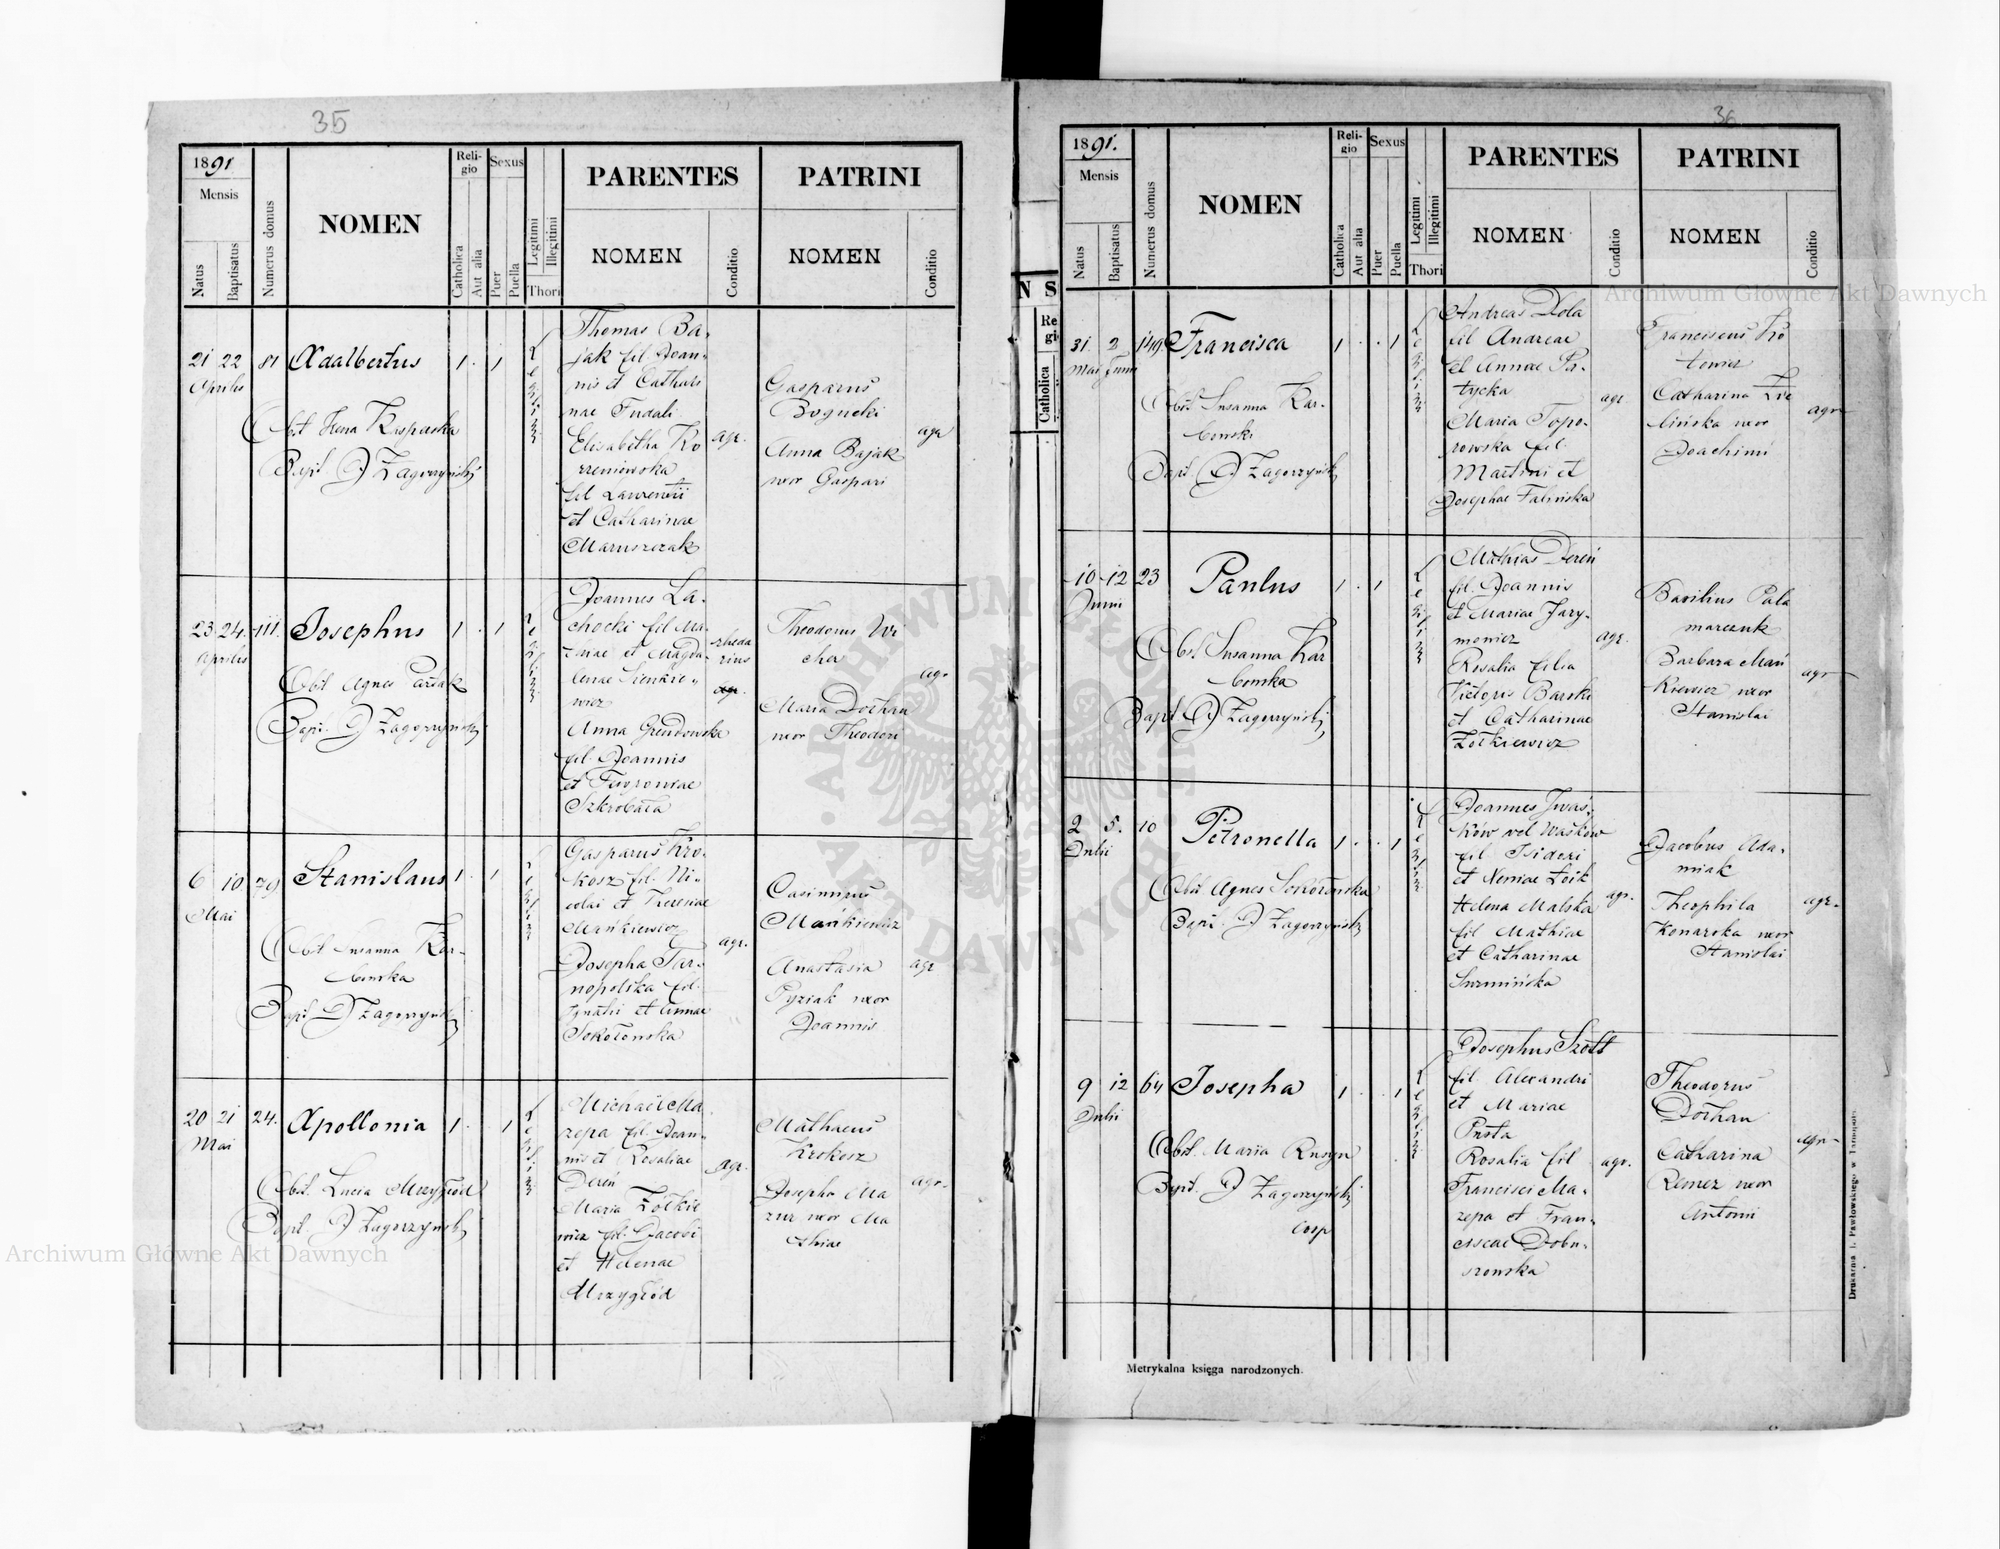 35
1891
Mensis
Natus
Baptisatus
Numerus domus
NOMEN
Religio
Catholica
Aut alia
Sexus
Puer
Puella
Legitimi
Illegitimi
Thori
PARENTES
NOMEN
Conditio
PATRINI
NOMEN
Conditio
21 22 81 Adalbertus 1 . 1
Aprilis
Obst
Bapt D Zagorzyński
Thomas Ba-
jak fil. Joan-
nis et Cathari
nae Fudali
Elisabetha Ko
rzeniowska
fil Laurentii
et Catharinae
Maruszczak
agr.
Gasparus
Bogucki
Anna Bajak
uxor Gaspari
agr
23 24 111. Josephus 1 . 1
Aprilis
Obst Agnes
Bapt. D Zagorzyński
Joannes La-
chocki fil Ma-
rinae et Magda-
lenae Sienkie-
wicz
Anna Grendowska
fil. Joannis
et
Szkrobała
rheda
rius
agr.
Theodorus Wi
cher
Maria Dothan
uxor Theodori
agr
6 10 79 Stanislaus 1 . 1
Mai
Obst Susanna Kar-
bowska
Bapt D Zagorzyński
Gasparus Kro-
kosz fil. Ni-
colai et Theresiae
Mańkiewicz
Josepha Tar-
nopolska fil.
Ignatii et Annae
Sokołowska
agr.
Casimirus
Mańkiewicz
Anastasia
Pyziak uxor
Joannis
agr
20 21 24. Apollonia 1 . . 1
Mai
Obst. Lucia Mrzygłód
Bapt D Zagorzyński
Michael Ma
zepa fil. Joan-
nis et Rosaliae
Dereń
Maria Żółkie
wicz fil. Jacobi
et Helenae
Mrzygłód
agr.
Mathaeus
Krokosz
Josepha Ma
zur uxor Ma
thiae
agr.
36
1891.
Mensis
Natus
Baptisatus
Numerus domus
NOMEN
Religio
Catholica
Aut alia
Sexus
Puer
Puella
Legitimi
Illegitimi
Thori
PARENTES
NOMEN
Conditio
PATRINI
NOMEN
Conditio
31 2 149 Francisca 1 . . 1
Mai Juni
Obst Susanna Kar-
bowski
Bapt. D Zagorzyński
Andreas Dola
fil Andreae
et Annae Pa-
tycka
Maria Topo-
rowska fil.
Martini et
Josephae Falińska
agr.
Franciscus Ko
towicz
Catharina Zie
lińska uxor
Joachimi
agr
10 12 23 Paulus 1 . 1
Juni
Obst Susanna Kar
bowska
Bapt D Zagorzyński
Mathias Dereń
fil. Joannis
et Mariae Jary-
mowicz
Rosalia filia
Victoris Barski
et Catharinae
Żółkiewicz
agr.
Basilius Pala
marczuk
Barbara Mań
kiewicz uxor
Stanislai
agr
2 5. 10 Petronella 1 . . 1
Julii
Obst Agnes Sokołowska
Bapt. D Zagorzyński
Joannes Iwaś-
ków vel Waśków
fil. Isidori
et Łoik
Helena Malska
fil Mathiae
et Catharinae
Surmińska
agr.
Jacobus Ada-
miak
Theophila
Konarska uxor
Stanislai
agr.
9 12 64 Josepha 1 . . 1
Julii
Obst. Maria Rusyn
Bapt. D Zagorzyński
coop
Josephus Szott
fil. Alexandri
et Mariae
Pusta
Rosalia fil
Francisci Ma-
zepa et Fran-
ciscae Dobu-
szowska
agr.
Theodorus
Dothan
Catharina
Remez uxor
Antonii
agr
Metrykalna księga narodzonych.
Drukarnia I. Pawłowskiego w Tarnopolu
N S
Re
gi
Catholica
Archiwum Główne Akt Dawnych
Archiwum Główne Akt Dawnych
ARCHIWUM GŁÓWNE AKT DAWNYCH